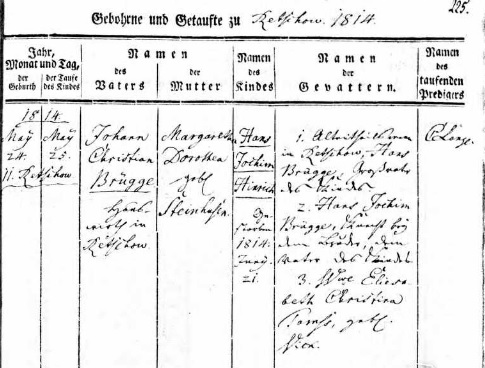 225.
Gebohrne und Getaufte zu Retschow. 1814.
Jahr,
Monat und Tag,
der
Geburth
der Taufe
des Kindes
Namen
des
Vaters
der
Mutter
Namen
des
Kindes
Namen
der
Gevattern.
Namen
des
taufenden
Predigers
1814.
May
24.
May
25.
11. Retschow
Johann
Christian
Brügge
Hans-
wirth in
Retschow.
Margaretha
Dorothea
gebl
Steinhagen
Hans
Jochim
Hinrich
Ge-
storben
1814.
Juny
21.
1.
in Retschow, Hans
Brügge, Grosvater
des Kindes
2. Hans Jochim
Brügge, Knecht bey
dem Bruder, dem
Vater des Kindes
3. Wwe Eliesa-
beth Christina
gebl.
Wien.
CLange.